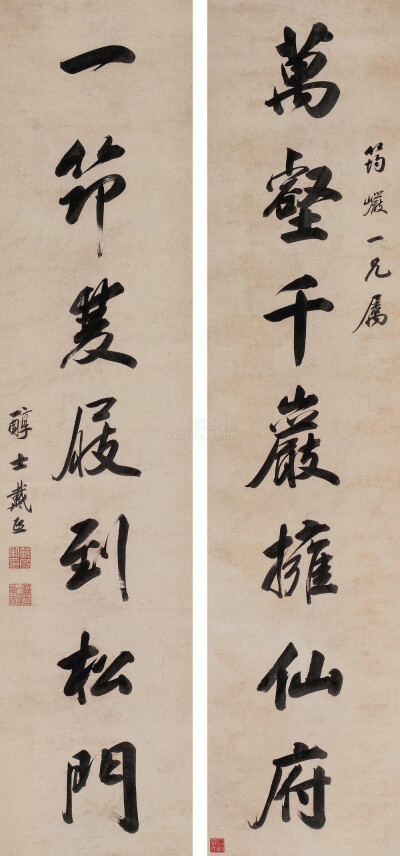 萬壑千巖擁仙府
筠巖一兄属
一筇雙屐到松門
醇士戴熙